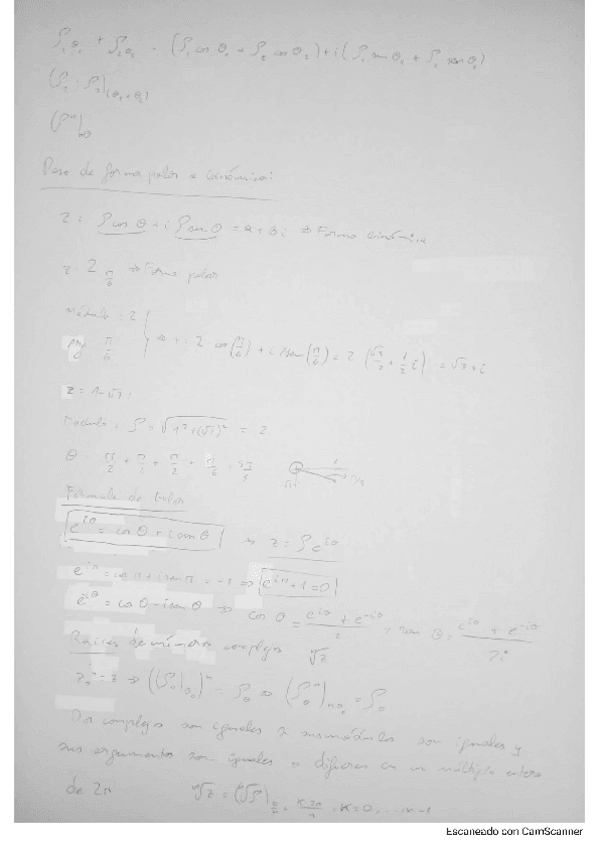 ρ₁θ₁ + ρ₂θ₂ = (ρ₁ cos θ₁ + ρ₂ cos θ₂) + i (ρ₁ sen θ₁ + ρ₂ sen θ₂)
Paso de forma polar a canónica:
z = ρ cos θ + i ρ sen θ = a + bi ⇒ Forma canónica
z = 2 π/6 ⇒ Forma polar
Módulo = 2
Arg π/6 } 2 cos(π/6) + i 2 sen(π/6) = 2 (√3/2 + 1/2 i) = √3 + i
z = 1-√3 i
Modulo = ρ = √(1² + (√3)²) = 2
θ = π/2 + π/2 + π/2 + π/6 = 5π/3
Formula de Euler
e^iθ = cos θ + i sen θ ⇒ z = ρ e^iθ
e^iπ = cos π + i sen π = -1 ⇒ e^iπ + 1 = 0
e^-iθ = cos θ - i sen θ ⇒ cos θ = (e^iθ + e^-iθ)/2 , sen θ = (e^iθ + e^-iθ)/2i
Raices de números complejos ⁿ√z
Dos complejos son iguales si sus módulos son iguales y
sus argumentos son iguales o difieren en un múltiplo entero
de 2π
Escaneado con CamScanner